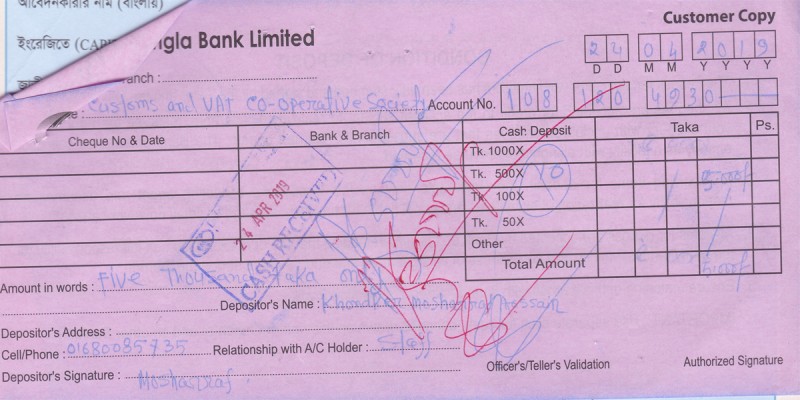 আবেদনকারীর নাম (বাংলায়)
ইংরেজিতে (CAP
Customer Copy
ngla Bank Limited
24 04 2019
D D M M Y Y Y Y
anch :
e : Customs and VAT Co-operative Society Account No. 108 120 4930
Cheque No & Date Bank & Branch Cash Deposit Taka Ps.
Tk. 1000X
Tk. 500X 10 5000/-
Tk. 100X
Tk. 50X
Other
Total Amount 5000/-
24 APR 2019
CASH RECEIVED
Amount in words : Five Thousand Taka only
Depositor's Name : Khondker Mosharraf Hossain
Depositor's Address :
Cell/Phone : Relationship with A/C Holder : Staff
Depositor's Signature :
Officer's/Teller's Validation Authorized Signature